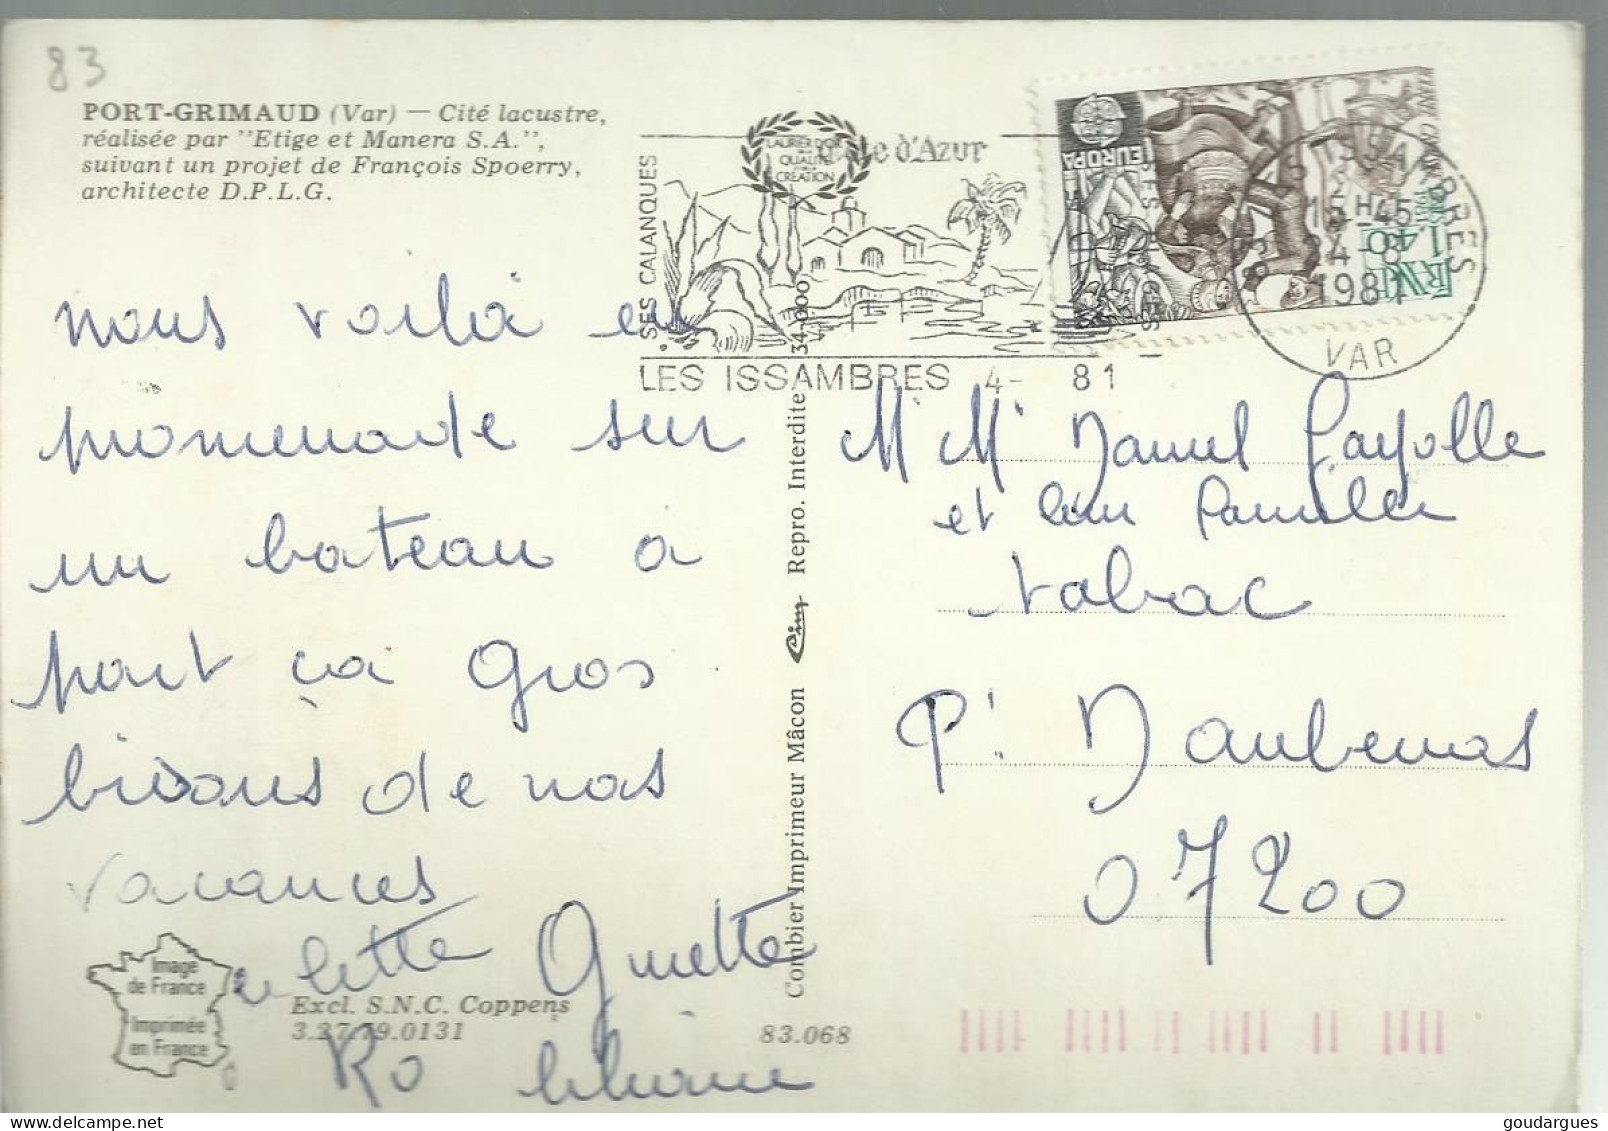 83
PORT-GRIMAUD (Var) — Cité lacustre,
réalisée par "Etige et Manera S.A.",
suivant un projet de François Spoerry,
architecte D.P.L.G.
nous voilà en
promenade sur
un bateau à
port ça Gros
bisous de nos
vacances
Ginette
Ro Liliane
Image
de France
Imprimée
en France
Excl. S.N.C. Coppens
3.27.79.0131
83.068
Combier Imprimeur Mâcon Cim Repro. Interdite
34.000
LAURIER D'OR
DE LA
QUALITÉ
CRÉATION
Côte d'Azur
SES CALANQUES
LES ISSAMBRES
4- 81
EUROPA
1,40
LES ISSAMBRES
15H45
24-8
1981
VAR
M Mr Daniel Fayolle
et leur famille
tabac
Pt D'aubenas
07200
goudargues - Delcampe.net